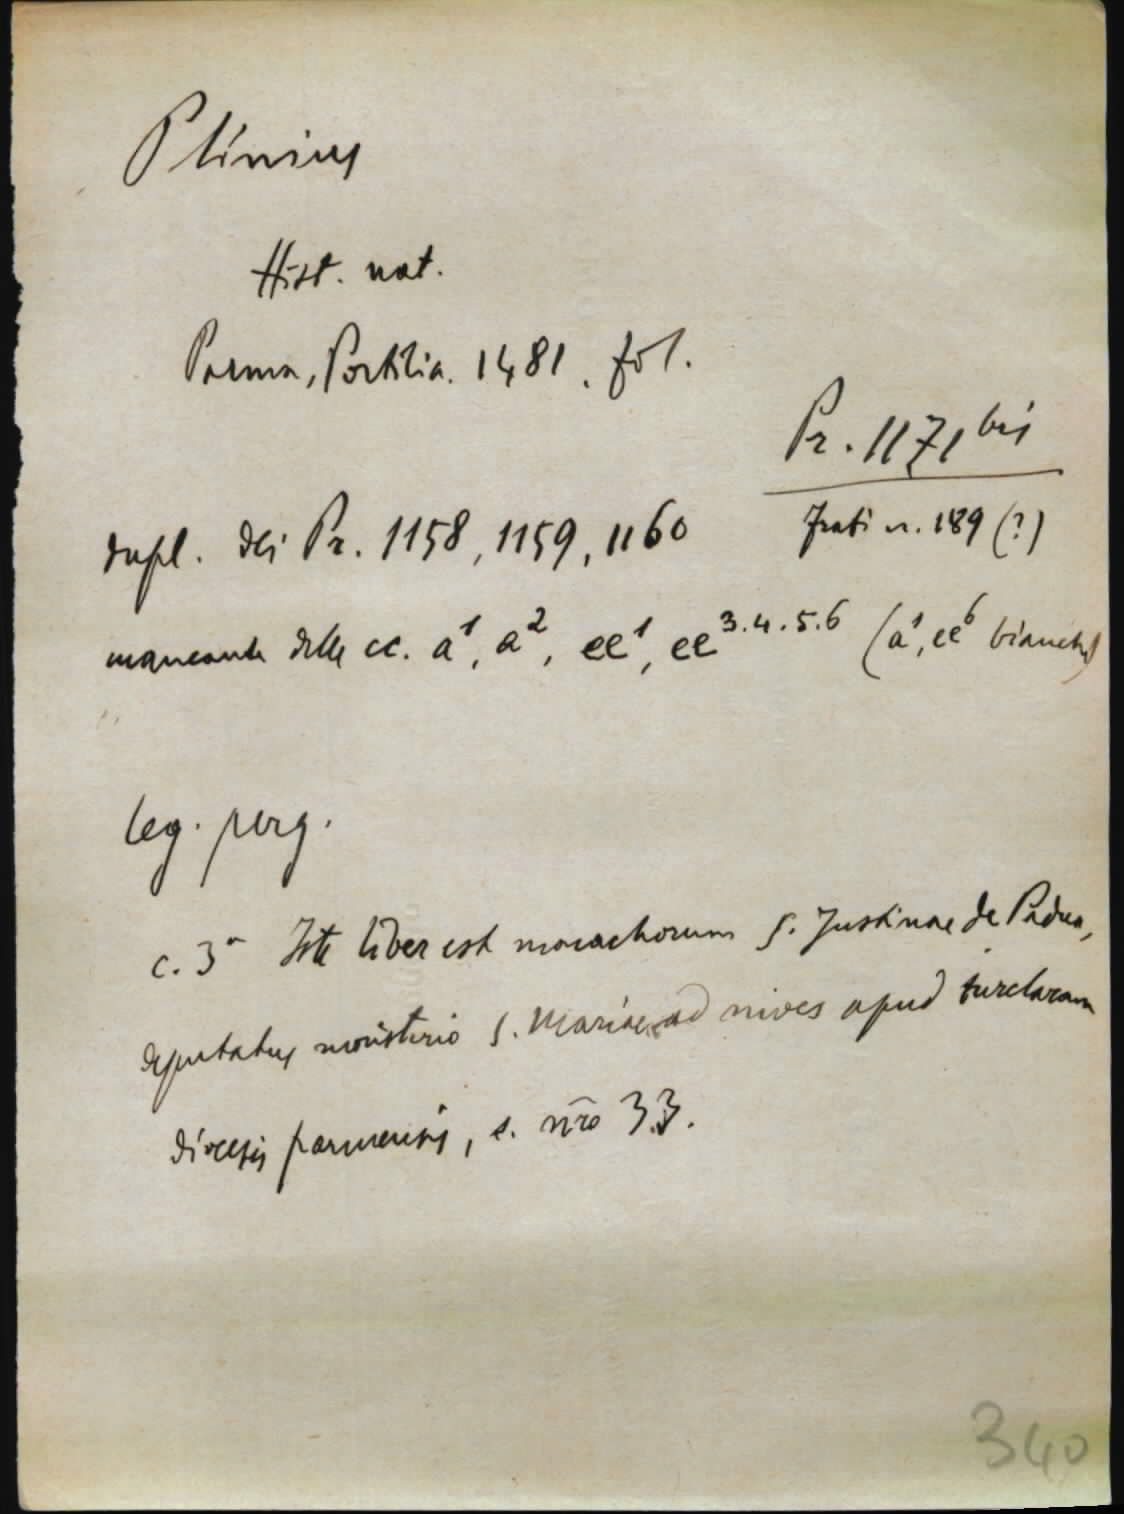 Plinius
Hist. nat.
Parma, Portilia. 1481. fol.
Pr. 1171 bis
Frati n. 189 (?)
dupl. dei Pr. 1158, 1159, 1160
mancante delle cc. a¹, a², ee¹, ee³·⁴·⁵·⁶ (a¹, ee⁶ bianche)
leg. perg.
c. 3ª Iste liber est monachorum S. Justinae de Padua,
deputatus monisterio S. Mariae ad nives apud turclaram
diocesis parmensis, s. nr̄o 33.
340